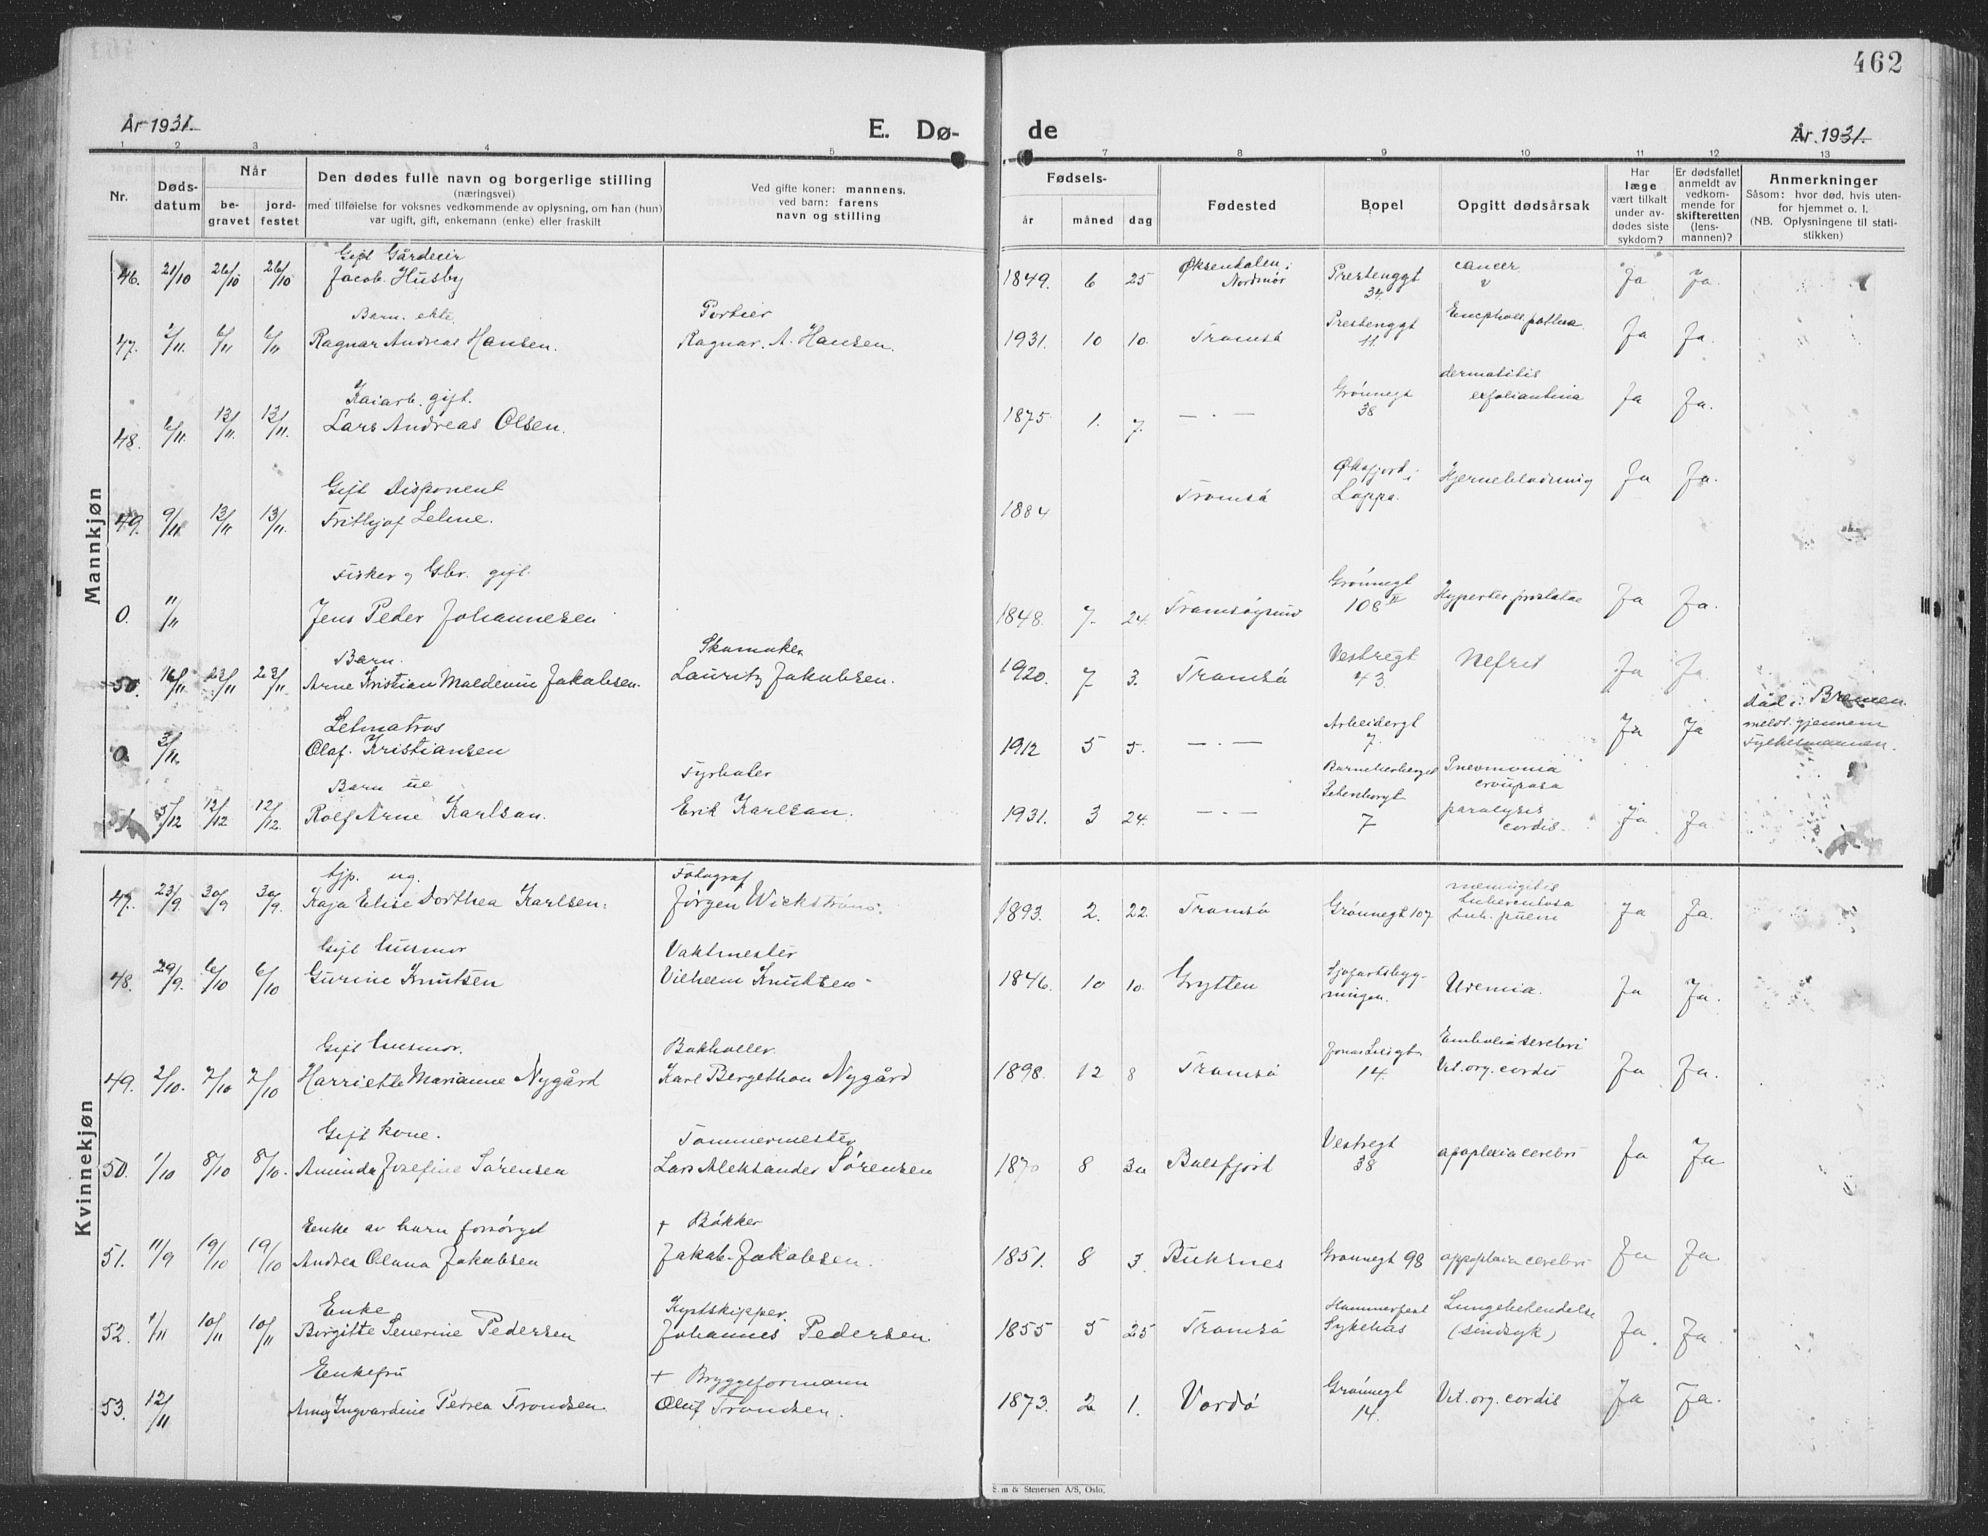 462
År 1931.
E. Dø-
de
År 1931.
1 2 3 4 5 7 8 9 10 11 12 13
Nr.
Døds-
datum
Når
be-
gravet
jord-
festet
Den dødes fulle navn og borgerlige stilling
(næringsvei)
med tilføielse for voksnes vedkommende av oplysning, om han (hun)
var ugift, gift, enkemann (enke) eller fraskilt
Ved gifte koner: mannens,
ved barn: farens
navn og stilling
Fødsels-
år
måned
dag
Fødested
Bopel
Opgitt dødsårsak
Har
læge
vært tilkalt
under av-
dødes siste
sykdom?
Er dødsfallet
anmeldt av
vedkom-
mende for
skifteretten
(lens-
mannen)?
Anmerkninger
Såsom: hvor død, hvis uten-
for hjemmet o. l.
(NB. Oplysningene til stati-
stikken)
Mannkjøn
Gift Gårdeier
46. 21/10 26/10 26/10 Jacob Husby 1849. 6 25 Øksendalen i Nordmør Prestenggt 34. cancer Ja Ja.
Barn. ekte. Portier
47. 2/11. 6/11 6/11 Ragnar Andreas Hansen. Ragnar. A. Hansen. 1931. 10 10. Tromsø Prestenggt 11. Ja Ja.
Kaiarb. gift.
48. 6/11. 13/11. 13/11. Lars Andreas Olsen. 1875. 1. 7. — . — Grønnegt 38 dermatitis exfoliantina Ja Ja.
Gift Disponent
49. 9/11 13/11 13/11. Frithjof Lelme. 1884 Tromsø Øksfjord i Loppa. Hjerneblødning Ja Ja.
Fisker og Gbr. gift.
0. 11/11 Jens Peder Johannesen 1848. 7. 24. Tromsøysund Grønnegt 108 II Hypertr. prostatae Ja Ja.
Barn. Skomaker
50. 16/11 23/11 23/11. Arne Kristian Maldevin Jakobsen. Lauritz Jakobsen. 1920. 7 3. Tromsø Vestregt 43 Nefrit Ja Ja
Letmatros
0. 3/11. Olaf. Kristiansen 1912 5 5. — . — Arbeidergt 7. Ja Ja død i Bremen. meldt gjennem Fylkesmannen.
Barn ue Fyrbøter
51. 5/12 12/12 12/12. Rolf Arne Karlsen. Erik Karlsen. 1931. 3 24. — . — Barneherberget 7 Pneumonia crouposa paralysis cordis. Ja Ja
Kvinnekjøn
tjp. ug. Fotograf
47. 23/9 30/9 30/9. Kaja Elise Dorthea Karlsen. Jørgen Wickstrøms. 1893. 2. 22. Tromsø Grønnegt 107 meningitis tuberculosa Ja Ja.
Gift husmor Vaktmester
48. 29/9. 6/10 6/10 Gurine Knutsen Vilhelm Knutsen 1846. 10 10. Grytten Sjøfartsbyg-ningen. Uremia. Ja Ja.
Gift husmor. Bokholler.
49. 2/10. 7/10 7/10 Harriette Marianne Nygård Karl Bergethon Nygård 1898. 12 8 Tromsø Jonas Liesgt. 14. Embolia cerebri Vit. org. cordis Ja Ja.
Gift kone. Tømmermester
50. 1/10 8/10 8/10. Aminda Josefine Sørensen Lars Aleksander Sørensen 1870 8 30 Balsfjord Vestregt 38 apoplexia cerebri Ja Ja
Enke av barn forsørget + Bøkker
51. 11/9 19/10 19/10 Andrea Olava Jakobsen Jakob Jakobsen. 1851. 8 3. Buksnes Grønnegt 98 appoplexia cerebri Ja Ja.
Enke Kystskipper.
52. 1/11 10/11 10/11 Birgitte Severine Pedersen Johannes Pedersen 1855 5 25 Tromsø Hammerfest Sykehus Lungebetendelse (sindsyk) Ja. Ja.
Enkefru + Bryggeformann
53. 12/11 Anna Ingvardine Petrea Trondsen. Oluf Trondsen. 1873. 2 1. Vardø Grønnegt 14. Vit. org. cordis Ja Ja.
& Stenersen A/S, Oslo.